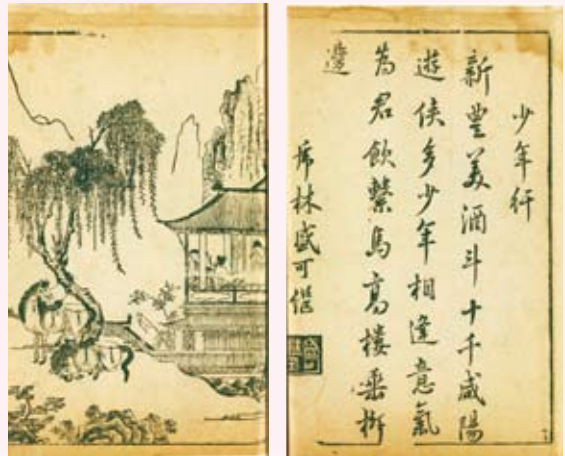 少年行
新豐美酒斗十千咸陽
遊俠多少年相逢意氣
為君飲繫馬高樓垂柳
邊